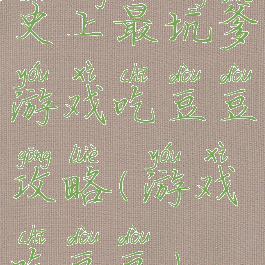 史上最坑爹
yóu xì chī dòu dòu
游戏吃豆豆
gōng lüè yóu xì
攻略(游戏
chī dòu dòu
吃豆豆)